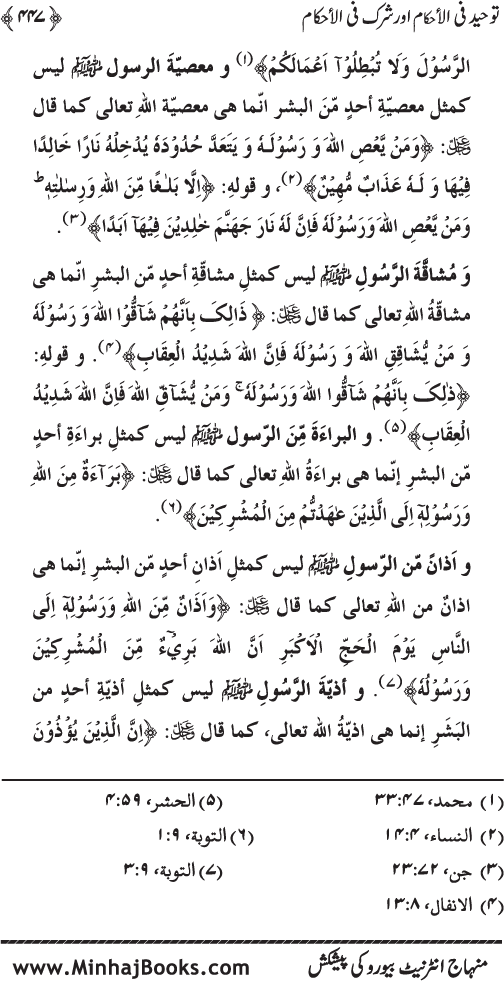 توحید فی الأحکام اور شرک فی الأحکام ﴿۴۴۷﴾
الرَّسُوْلَ وَلَا تُبْطِلُوْٓا اَعْمَالَكُمْ﴾(۱) و معصیّة الرسول ﷺ لیس
کمثل معصیّةِ أحدٍ مّنَ البشر انّما هی معصیّة اللهِ تعالی کما قال
ﷻ: ﴿وَمَنْ يَّعْصِ اللهَ وَ رَسُوْلَـهٗ وَ يَتَعَدَّ حُدُوْدَهٗ يُدْخِلْهُ نَارًا خَالِدًا
فِيْهَا وَ لَـهٗ عَذَابٌ مُّهِيْنٌ﴾(۲)، و قولهِ: ﴿اِلَّا بَلٰـغًا مِّنَ اللهِ وَرِسٰلٰتِهٖ ط
وَمَنْ يَّعْصِ اللهَ وَرَسُوْلَهٗ فَاِنَّ لَهٗ نَارَ جَهَنَّمَ خٰلِدِيْنَ فِيْهَآ اَبَدًا﴾(۳).
و مُشاقَّة الرَّسُولِ ﷺ لیس کمثلِ مشاقّةِ أحدٍ مّن البشرِ انّما هی
مشاقّةُ اللهِ تعالی کما قال ﷻ: ﴿ ذَالِکَ بِاَنَّهُمْ شَآقُّوْا اللهَ وَ رَسُوْلَهٗ
وَ مَنْ يُّشَاقِقِ اللهَ وَ رَسُوْلَهٗ فَاِنَّ اللهَ شَدِيْدُ الْعِقَابِ﴾(۴). و قولهِ:
﴿ذٰلِکَ بِاَنَّهُمْ شَآقُّوا اللهَ وَرَسُوْلَهٗ ج وَمَنْ يُّشَآقِّ اللهَ فَاِنَّ اللهَ شَدِيْدُ
الْعِقَابِ﴾(۵). و البراءَة مِّنَ الرّسول ﷺ لیس کمثلِ براءَةِ أحدٍ
مّن البشرِ إنّما هی براءَةُ اللهِ تعالی کما قال ﷻ: ﴿بَرَآءَةٌ مِّنَ اللهِ
وَرَسُوْلِهٖٓ اِلَی الَّذِيْنَ عٰهَدْتُّمْ مِنَ الْمُشْرِكِيْنَ﴾(۶).
و اَذانٌ مّن الرّسولِ ﷺ لیس کمثلِ اَذانِ أحدٍ مّن البشرِ إنّما هی
اذانٌ من اللهِ تعالی کما قال ﷻ: ﴿وَاَذَانٌ مِّنَ اللهِ وَرَسُوْلِهٖٓ اِلَی
النَّاسِ يَوْمَ الْحَجِّ الْاَکْبَرِ اَنَّ اللهَ بَرِيْٓءٌ مِّنَ الْمُشْرِكِيْنَ
وَرَسُوْلُهٗ﴾(۷). و أذیّة الرَّسُولِ ﷺ لیس کمثلِ أذیّةِ أحدٍ من
البَشَرِ إنما هی اذیّةُ الله تعالی، کما قال ﷻ: ﴿اِنَّ الَّذِيْنَ يُؤْذُوْنَ
(۱) محمد، ۴۷:۳۳ (۵) الحشر، ۵۹:۴
(۲) النساء، ۴:۱۴ (۶) التوبة، ۹:۱
(۳) جن، ۷۲:۲۳ (۷) التوبة، ۹:۳
(۴) الانفال، ۸:۱۳
منہاج انٹرنیٹ بیورو کی پیشکش www.MinhajBooks.com